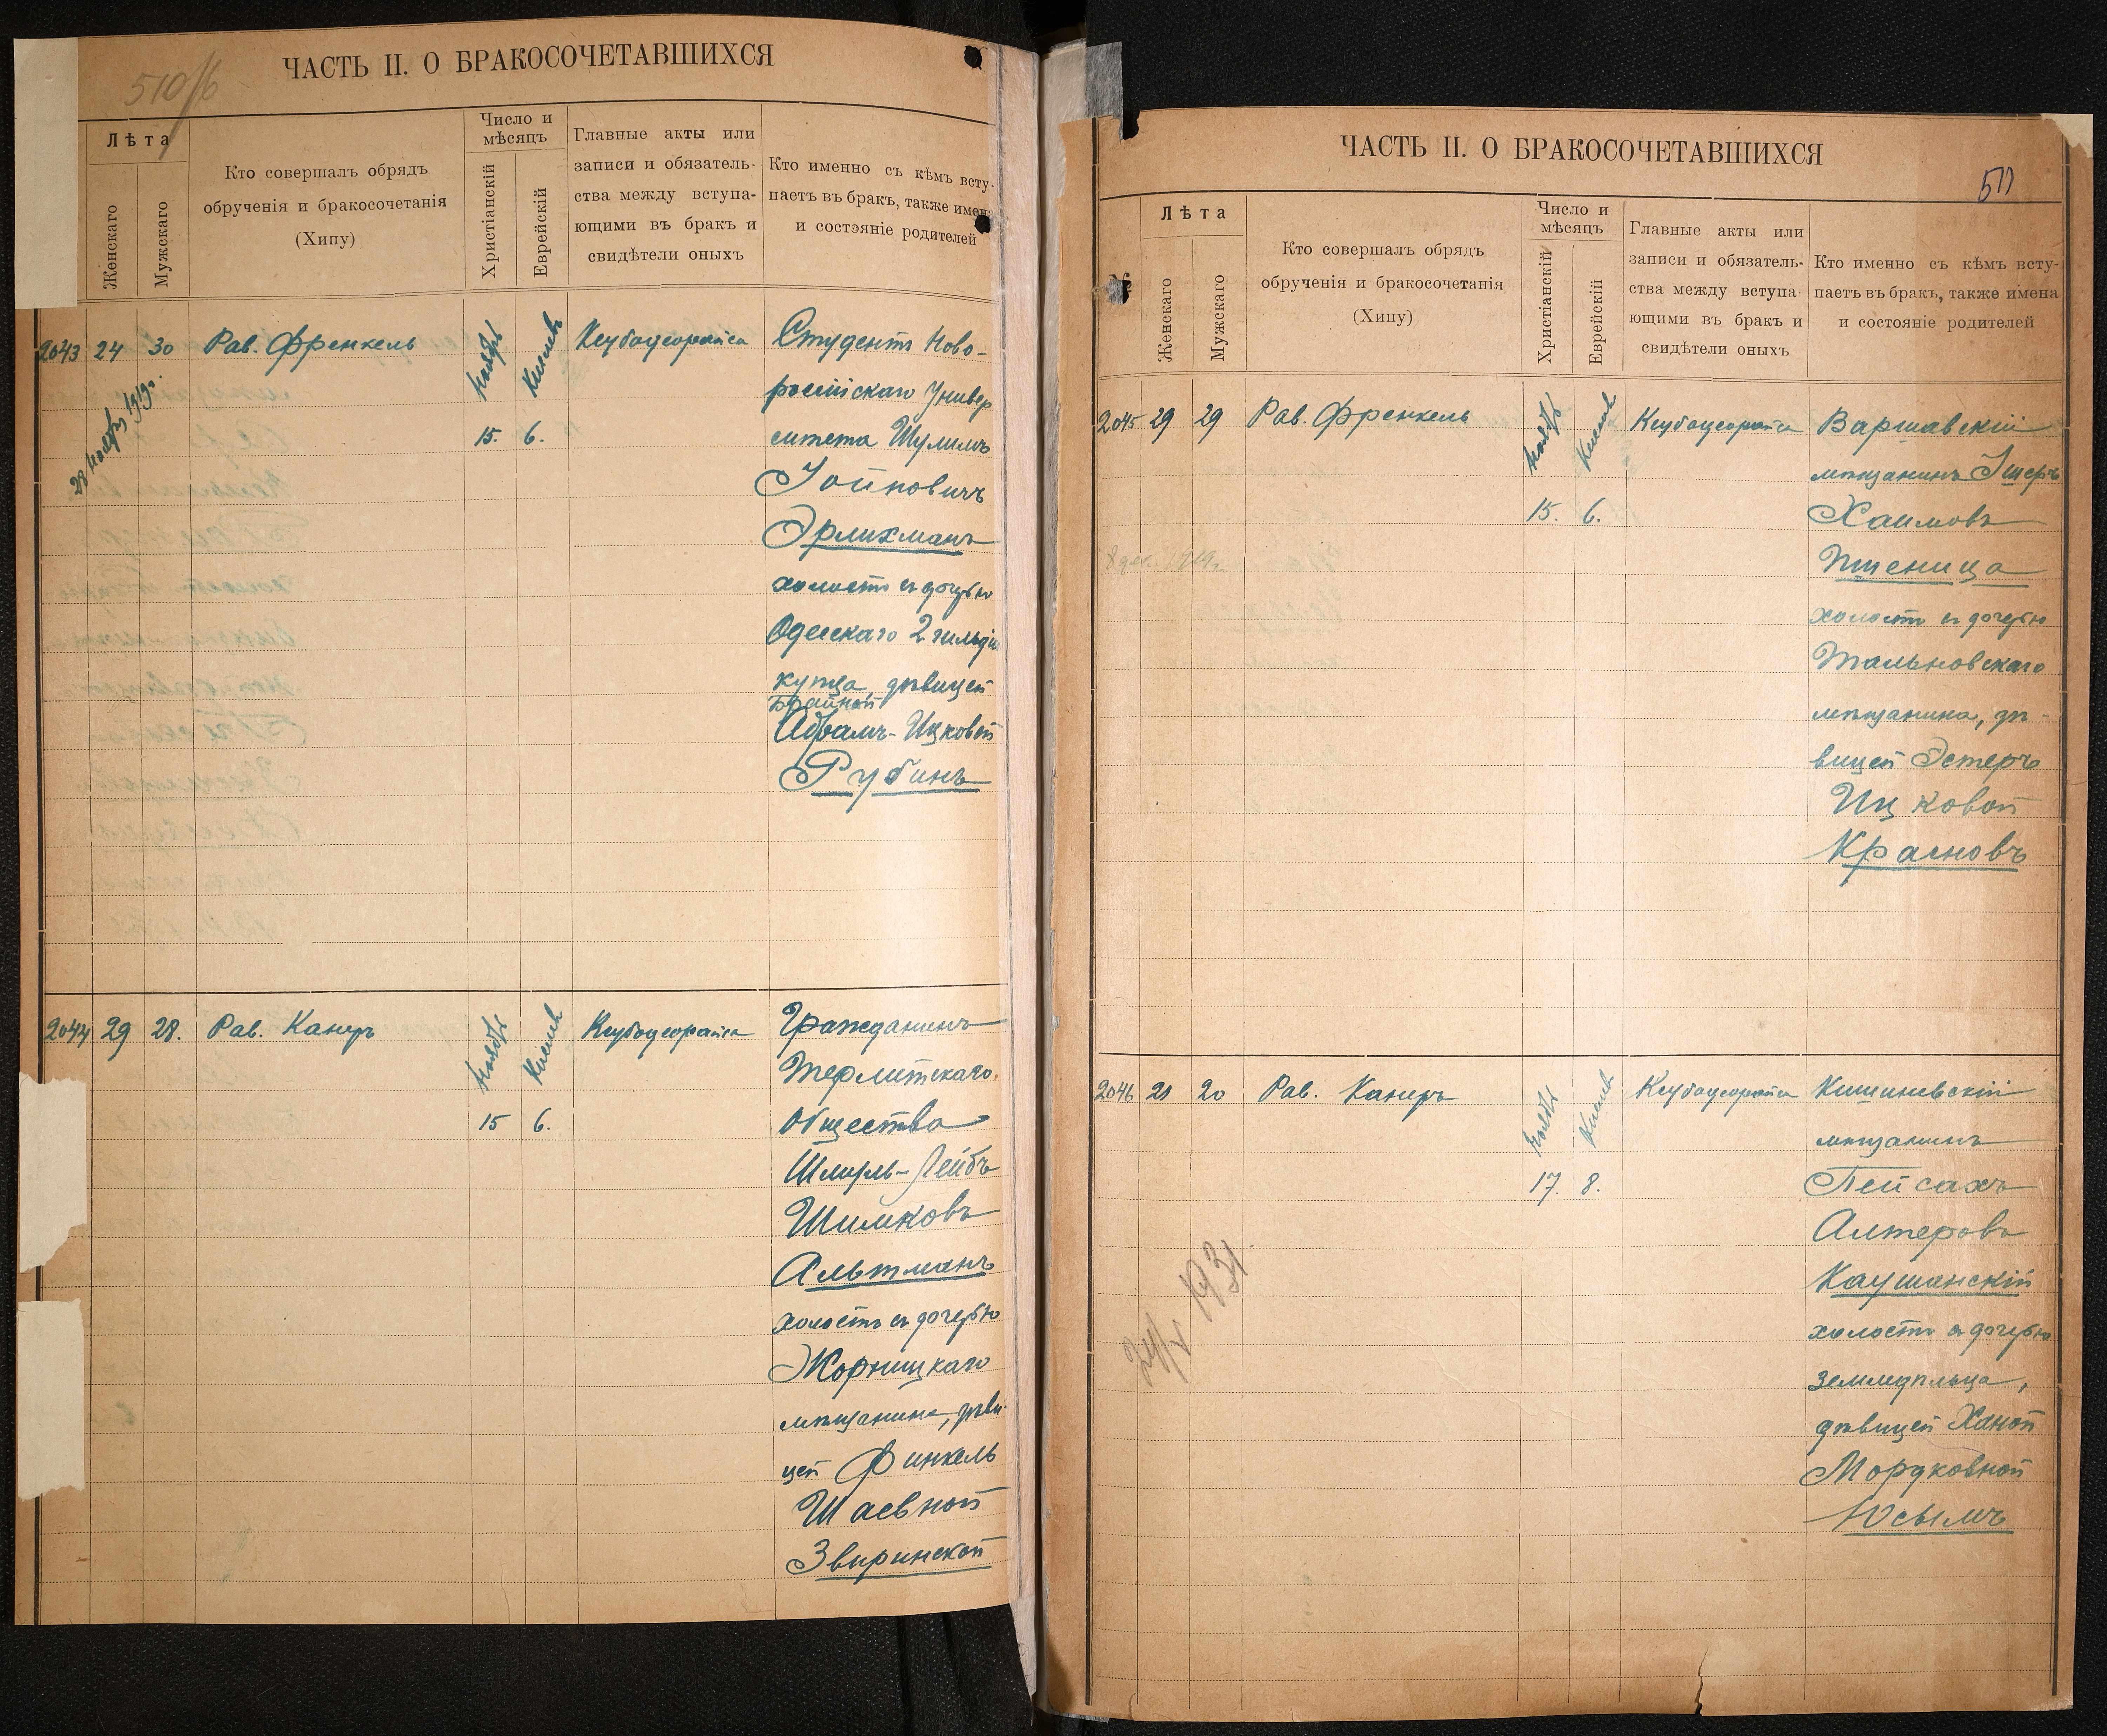 510/б
ЧАСТЬ II. О БРАКОСОЧЕТАВШИХСЯ
Лѣта
Женскаго
Мужскаго
Кто совершалъ обрядъ
обрученія и бракосочетанія
(Хипу)
Число и
мѣсяцъ
Христіанскій
Еврейскій
Главные акты или
записи и обязатель-
ства между вступа-
ющими въ бракъ и
свидѣтели оныхъ
Кто именно съ кѣмъ всту-
паетъ въ бракъ, также имена
и состояніе родителей
2043 24 30 Рав. Френкель Ноябрь Кислевъ Ксубацеорайса Студентъ Ново-
28 Ноября 1919г.
россійскаго Универ
15. 6. ситета Шулимъ
Іойновичъ
Эрлихманъ
холостъ съ дочерью
Одесскаго 2 гильдіи
купца, дѣвицей
Брайной
Абрамъ-Ицковой
Рубинъ
2044 29 28. Рав. Канеръ Ноябрь Кислевъ Ксубацеорайса Гражданинъ
Терлитскаго
15 6. Общества
Шмуль-Лейбъ
Шимковъ
Альтманъ
холостъ съ дочерью
Жорнищкаго
мѣщанина, дѣви-
цей Финкель
Шаевной
Звиринской
ЧАСТЬ II. О БРАКОСОЧЕТАВШИХСЯ
511
№
Лѣта
Женскаго
Мужскаго
Кто совершалъ обрядъ
обрученія и бракосочетанія
(Хипу)
Число и
мѣсяцъ
Христіанскій
Еврейскій
Главные акты или
записи и обязатель-
ства между вступа-
ющими въ бракъ и
свидѣтели оныхъ
Кто именно съ кѣмъ всту-
паетъ въ бракъ, также имена
и состояніе родителей
2045 29 29 Рав. Френкель Ноябрь Кислевъ Ксубацеорайса Варшавскій
мѣщанинъ Ішеръ
15. 6. Хаимовъ
8 дек. 1919г. Пшеница
холостъ съ дочерью
Тальновскаго
мѣщанина, дѣ-
вицей Эстеръ
Ицковой
Красновъ
2046 21 20 Рав. Канеръ Ноябрь Кислевъ Ксубацеорайса Кишиневскій
мѣщанинъ
17. 8. Пейсахъ
Алтеровъ
24/X 1931. Каушанскій
холостъ съ дочерью
земледѣльца,
дѣвицей Ханой
Мордковной
Юсымъ